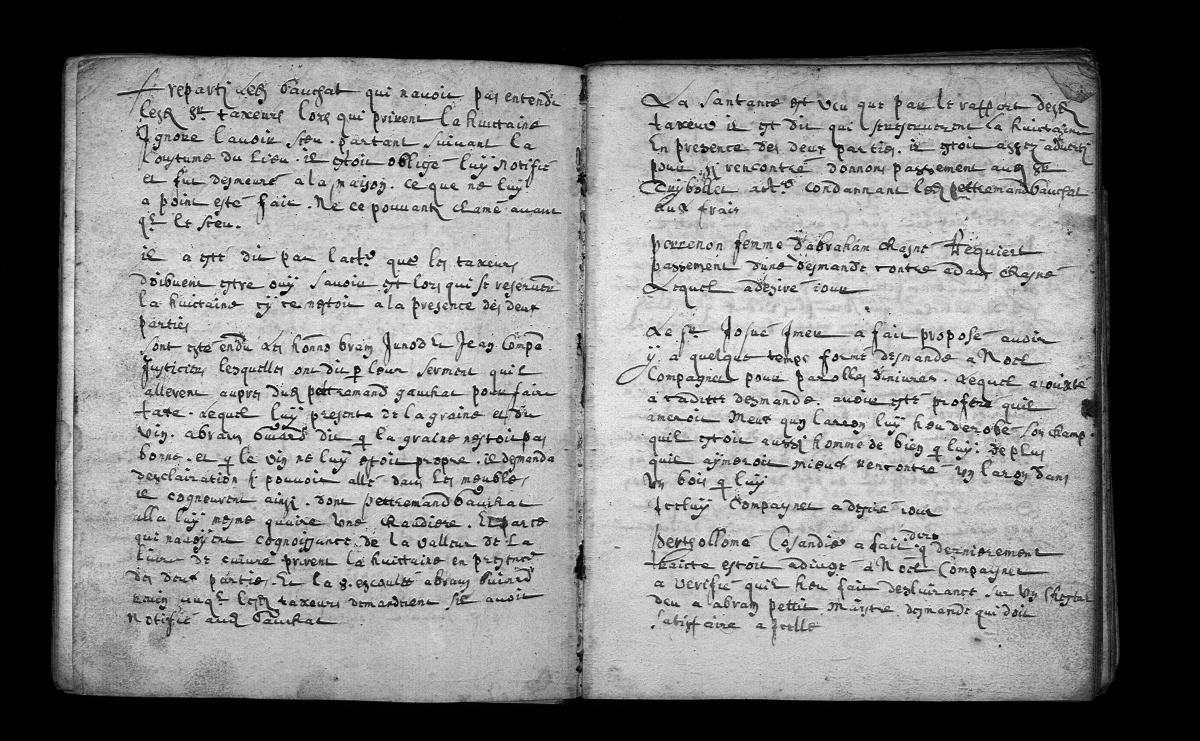 reparti led gauchat qui navoit pas entendu
lesd Sr taxeurs lors qui prirent la huictaine
Ignore lavoir sceu. partant suivant la
Coustume du Lieu. il estoit oblige luÿ Notifié
et fut desmeuré a la maison. ce que ne luÿ
a point esté fait. Ne ce pouvant clamé avant
qe le sceu.
il a esté dit par lacte que les taxeurs
doibvent estre ouÿ savoir est lors qui se reserverent
la huictaine sÿ ce nestoit a la presence des deux
parties
sont esté entendu les honn Abram Junod et Jean Compa
Justiciers lesquelles ont dit p leur serment quil
allerent aupres dud pettremand gauchat pour faire
taxe. lequel luÿ presenta de la graine et du
vin. abram dit q la graine nestoit pas
bonne. et q le vin ne luÿ estoit propre. il demanda
desclairation sÿ pouvoit allé dans les meubles
il cogneurent ainsi. dont pettremand Gauchat
alla luÿ mesme quaire une chaudiere. Et parce
qui navoÿent cognoissance de la valleur de la
livre de cuivre prirent la huictaine en presence
des deux parties. Et la abram
lesd taxeurs demandirent sil avoit
Notifié aud Gauchat
La Santance est veu que par le rapport desd
taxeurs il est dit qui se reserverent la huictaine
En presence des deux parties. il estoit assez adverti
pour rencontre donnons passement aud Sr
condannant led pettremand Gauchat
aux frais
perrenon femme dabraham Clasne Requiert
passement dune desmande contre adam Clasne
Lequel a desiré jour
Le Sr Josué a fait proposé avoir
ÿ a quelque temps formé desmande a Noel
Compagnet pour parolles diniures. Lequel a
a ladite desmande. avoir esté proferé quil
aimeroit Mieux qun larron luÿ heu derobé son champ.
quil estoit aussi homme de bien q luÿ. de plus
quil aÿmeroit mieux rencontré un laron dans
un bois q luÿ
Jcelluÿ Compagnet a desiré jour
Bertsollomé Cosandié a fait dire q dernierement
traicte estoit adiugé a Noel Compagnet
a verifié quil heu fait desluirance sur un
deu a abram pettit Maistre desmande qui doit
satisffaire a Jcelle